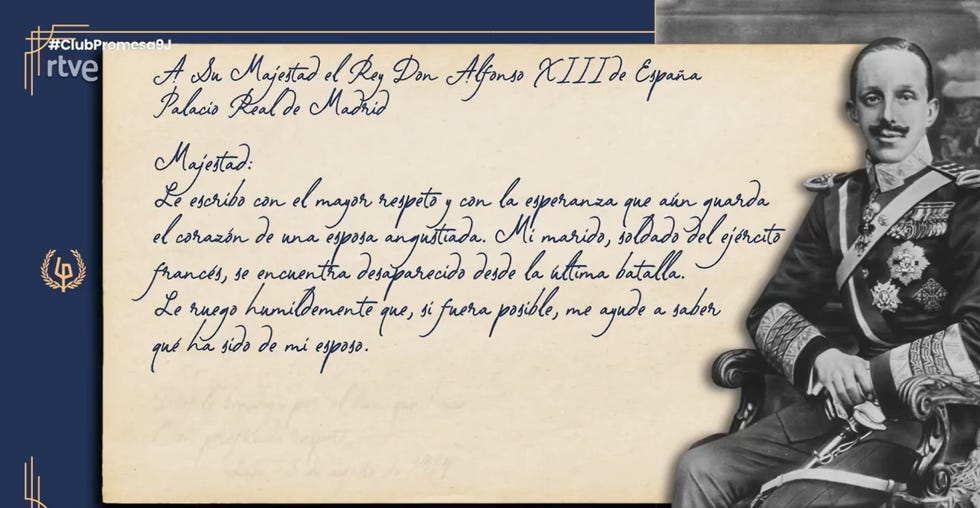 #ClubPromesa9J
rtve
A Su Majestad el Rey Don Alfonso XIII de España
Palacio Real de Madrid
Majestad:
Le escribo con el mayor respeto y con la esperanza que aún guarda
el corazón de una esposa angustiada. Mi marido, soldado del ejército
francés, se encuentra desaparecido desde la última batalla.
Le ruego humildemente que, si fuera posible, me ayude a saber
qué ha sido de mi esposo.
LP